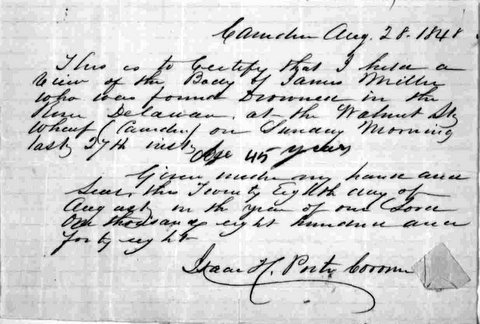 Camden Aug. 28. 1848
This is to Certify that I held a
View of the Body of James Miller
who was found Drowned in the
River Delaware at the Walnut St
Wharf (Camden) on Sunday Morning
last 27th inst Age 45 years
Given under my hand and
Seal this Twenty Eighth day of
August in the year of our Lord
One thousand eight hundred and
forty eight
Isaac H. Porter Coroner